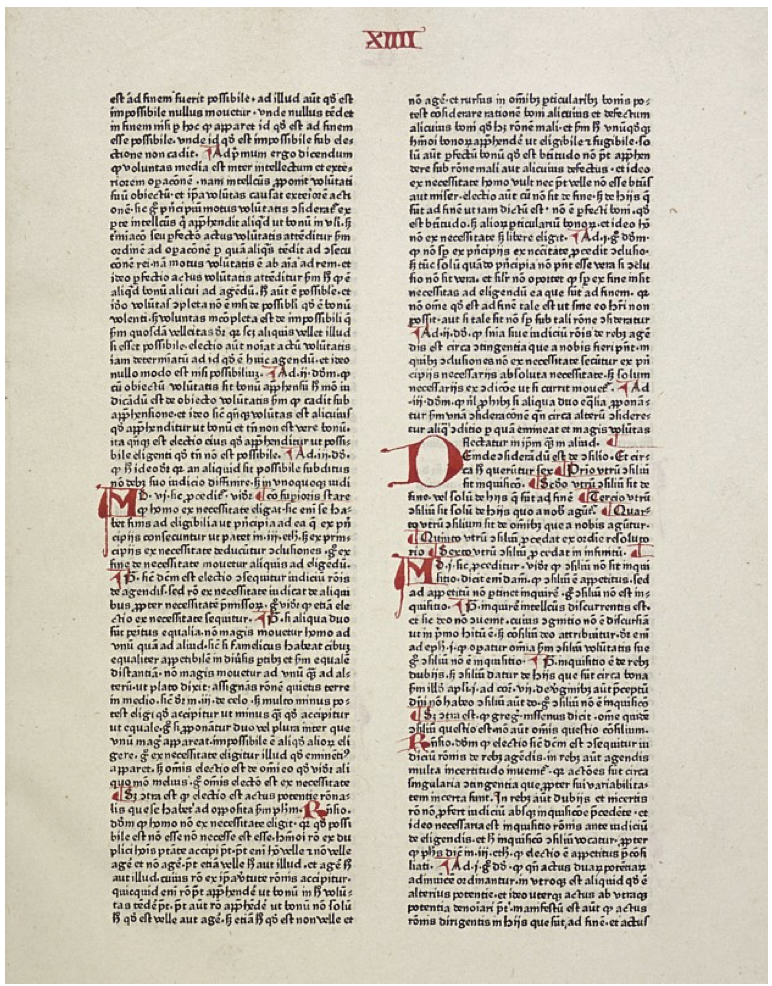 XIIII
est ad finem fuerit possibile· ad illud aūt qd̄ est
impossibile nullus mouetur· vnde nullus tēdet
in finem nisi ꝑ hoc ꝙ apparet id qd̄ est ad finem
esse possibile· vnde id qd̄ est impossibile sub ele-
ctione non cadit· ¶Ad p̄mum ergo dicendum
ꝙ voluntas media est inter intellectum et exte-
riorem opacōnē· nam intellcūs ꝓponit volūtati
suū obiectū· et ip̄a volūtas causat exteriorē acti
onē· sic g̊ p̄ncipiū motus volūtatis ↄsiderat̄ ex
ꝑte intellcūs q̄ app̄hendit aliqd̄ ut bonū in vl̄i· s̄
t̄miacō seu ꝑfectō actus volūtatis attēditur s̄m
ordinē ad opacōnē ꝑ quā aliq̄s tēdit ad ↄsecu
cōnē rei· nā motus volūtatis ē ab aīa ad rem· et
ideo ꝑfectio actus volūtatis attēditur s̄m h̄ ꝙ ē
aliqd̄ bonū alicui ad agēdū· h̄ aūt ē possibile· et
iđo volūtas ↄpleta nō ē nisi de possibili qd̄ ē bonū
volenti· s̄ voluntas incōpleta est de impossibili q̄
s̄m quosdā velleitas dr̄· qr scꝫ aliquis vellet illud
si esset possibile· electio aūt noīat actū volūtatis
iam determiatū ad id qd̄ ē huic agendū· et ideo
nullo modo est nisi possibiliuꝫ· ¶Ad·ij·dōm·ꝙ
cū obiectū volūtatis sit bonū app̄hensū h̄ mō iu
dicādū est de obiecto volūtatis s̄m ꝙ cadit sub
app̄hensione· et ideo sic qn̄qꝫ volūtas est alicuius
qd̄ app̄henditur ut bonū et tn̄ non est vere bonū·
ita qn̄qꝫ est electio eius qd̄ app̄henditur ut possi-
bile eligenti qd̄ tn̄ nō est possibile· ¶Ad·iij·dō·
ꝙ h̄ ideo dr̄ qr an aliquid sit possibile subditus
nō debꝫ suo iudicio diffinire· s̄ in vnoquoqꝫ iudi
MD·vi·sic ꝓcedit̄· vidr̄ ¶cō supioris stare
ꝙ homo ex necessitate eligat· sic eni se ha-
bet finis ad eligibilia ut p̄ncipia ad ea q̄ ex pn̄
cipiis consecuntur ut patet in·iij·eth· s̄ ex prin-
cipiis ex necessitate deducūtur ↄclusiones· g̊ ex
fine de necessitate mouetur aliquis ad eligēdū·
¶P̄· sic dc̄m est electio ↄsequitur iudiciū rōis
de agendis· sed rō ex necessitate iudicat de aliqui
bus ꝓpter necessitatē p̄missoꝝ· g̊ vidr̄ ꝙ etiā ele
ctio ex necessitate sequitur· ¶P̄· si aliqua duo
sūt pēitus equalia· nō magis mouetur homo ad
vnū quā ad aliud· sic si famelicus habeat cibuꝫ
equaliter appetibilē in diūsis ꝑtibꝫ et s̄m equalē
distantiā· nō magis mouetur ad vnū q̄ꝫ ad al-
terū· ut plato dixit· assignās rōnē quietis terre
in medio· sic dr̄ in·iij·de celo· s̄ multo minus po-
test eligi qd̄ accipitur ut minus q̄ꝫ qd̄ accipitur
ut equale· g̊ si ꝓponātur duo vel plura inter que
vnū mag̊ appareat· impossibile ē aliqd̄ alioꝝ eli
gere· g̊ ex necessitate eligitur illud qd̄ eminenc̄
apparet· s̄ om̄is electio est de om̄i eo qd̄ vidr̄ ali
quo mō melius· g̊ om̄is electō est ex necessitate
¶Sꝫ ↄtra est ꝙ electio est actus potentie rōna-
lis que se habet ad opposita s̄m ph̄m· Rn̄sio·
dōm ꝙ homo nō ex necessitate eligit· qr qd̄ possi
bile est nō esse nō necesse est esse· hm̄oi rō ex du
plici hoīs ptāte accipi p̄t· p̄t eni hō velle ⁊ nō velle
agē et nō agē· p̄t etiā velle h̄ aut illud· et agē h̄
aut illud· cuius rō ex ip̄a v̄tute rōnis accipitur·
quicquid eni rō p̄t app̄hendē ut bonū in h̄ volū-
tas tēdē p̄t· p̄t aūt rō app̄hēdē ut bonū nō solū
h̄ qd̄ est velle aut agē· s̄ etiā h̄ qd̄ est non velle et
nō agē· et rursus in om̄ibꝫ ꝑticularibꝫ bonis po-
test cōsiderare rationē boni alicuius et defectum
alicuius boni qd̄ hꝫ rōnē mali· et s̄m h̄ vnūqd̄qꝫ
hm̄oi bonoꝝ app̄hendē ut eligibile ⁊ fugibile· so
lū aūt ꝑfectū bonū qd̄ est btītudo nō p̄t app̄hen
dere sub rōne mali aut alicuius defectus· et ideo
ex necessitate homo vult nec p̄t velle nō esse btūs
aut miser· electio aūt cū nō sit de fine· s̄ de hijs q̄
sūt ad finē ut iam dictū est· nō ē ꝑfecti boni· qd̄
est btītudo· s̄ alioꝝ ꝑticulariū bonoꝝ· et ideo hō
nō ex necessitate s̄ libere eligit· ¶Ad·j·g̊ dōm·
ꝙ nō sꝑ ex p̄ncipiis ex nēcitate ꝓcedit ↄclusio·
s̄ tūc solū quādo p̄ncipia nō pn̄t esse vera si ↄclu
sio nō sit vera· et sil̄r nō oportet ꝙ sꝑ ex fine insit
necessitas ad eligendū ea que sūt ad finem· qr
nō om̄e qd̄ est ad finē tale est ut sine eo h̄ri non
possit· aut si tale sit nō sꝑ sub tali rōne ↄsideratur
¶Ad·ij·dō· ꝙ snīa siue iudiciū rōis de rebꝫ agē
dis est circa ↄtingentia que a nobis fieri pn̄t· in
quibꝫ ↄclusiones nō ex necessitate secūtur ex pn̄
cipiis necessariis absoluta necessitate· s̄ solum
necessariis ex ↄdicōe ut si currit mouet̄· ¶Ad
·iij·dōm· ꝙ nl̄ ꝓhibꝫ si aliqua duo eq̄lia ꝓponā-
tur s̄m vnā ↄsideracōnē qn̄ circa alterū ↄsidere-
tur aliq̄ ↄditio ꝑ quā emineat et magis volūtas
flectatur in ip̄m q̄ꝫ in aliud· ¶
DEinde ↄsiderādū est de ↄsilio· Et cir-
ca h̄ querūtur sex· ¶Prio vtrū ↄsiliū
sit inquisicō· ¶Scđo vtrū ↄsiliū sit de
fine· vel solū de hijs q̄ sūt ad finē· ¶Tercio vtrū
ↄsiliū sit solū de hijs quo a nob̄ agūt̄· ¶Quar-
to vtrū ↄsiliū sit de om̄ibꝫ que a nobis agūtur·
¶Quinto vtrū ↄsiliū ꝓcedat ex ordīe resoluto
rio ¶Sexto vtrū ↄsiliū ꝓcedat in infinitū· ¶
MD·j·sic ꝓceditur· vidr̄ ꝙ ↄsiliū nō sit inqui
sitio· dicit eni dam̄· ꝙ ↄsiliū ē appetitus· sed
ad appetitū nō ptinet inquirē· g̊ ↄsiliū nō est in-
quisitio· ¶P̄· inquirē intellcūs discurrentis est·
et sic deo nō ↄuenit· cuius ↄgnitio nō ē discursiā
ut in p̄mo h̄itū ē· s̄ cōsiliū deo attribuitur· dr̄ eni
ad eph·j·ꝙ opatur om̄ia s̄m ↄsiliū volūtatis sue
g̊ ↄsiliū nō ē inquisitio· ¶P̄· inquisitio ē de rebꝫ
dubijs· s̄ ↄsiliū datur de hijs que sūt circa bona
s̄m illđ apl̄i·j·ad cor·vij·de v̄ginibꝫ aūt p̄ceptū
dn̄i nō habeo ↄsiliū aūt do· g̊ ↄsiliū nō ē inquisicō
¶Sꝫ ↄtra est· ꝙ greg· nissenus dicit· om̄e quidē
ↄsiliū questio est· nō aūt om̄is questio cōsilium·
Rn̄sio· dōm· ꝙ electio sic dc̄m est ↄsequitur iu
diciū rōnis de rebꝫ agēdis· in rebꝫ aūt agendis
multa incertitudo inuenit̄· qr actōes sūt circa
singularia ↄtingentia que ꝓpter sui variabilita-
tem incerta sunt· In rebꝫ aūt dubijs et incertis
rō nō ꝓfert iudiciū absqꝫ inquisicōe p̄cedēte· et
ideo necessaria est inquisitio rōnis ante iudiciū
de eligendis· et h̄ inquisicō ↄsiliū vocatur· ꝓpter
ꝙ ph̄s dic̄ in·iij·eth· ꝙ electio ē appetitus p̄cōsi
liati· ¶Ad·j·g̊ dō· ꝙ qn̄ actus duaꝝ potētiaꝝ
adinuicē ordinantur· in vtroqꝫ est aliquid qd̄ ē
alterius potentie· et ideo uterqꝫ actus ab vtraqꝫ
potentia denoīari p̄t· manifestū est aūt ꝙ actus
rōnis dirigentis in hijs que sūt ad finē· et actus